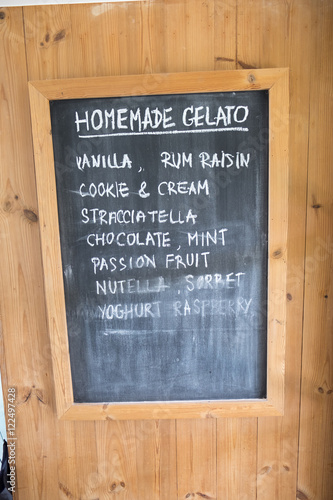 HOMEMADE GELATO
VANILLA, RUM RAISIN
COOKIE & CREAM
STRACCIATELLA
CHOCOLATE, MINT
PASSION FRUIT
NUTELLA, SORBET
YOGHURT RASPBERRY
122497428